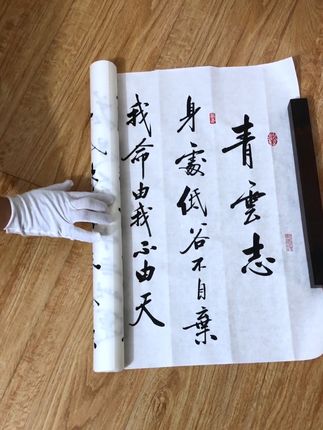 青雲志
身處低谷不自棄
我命由我不由天